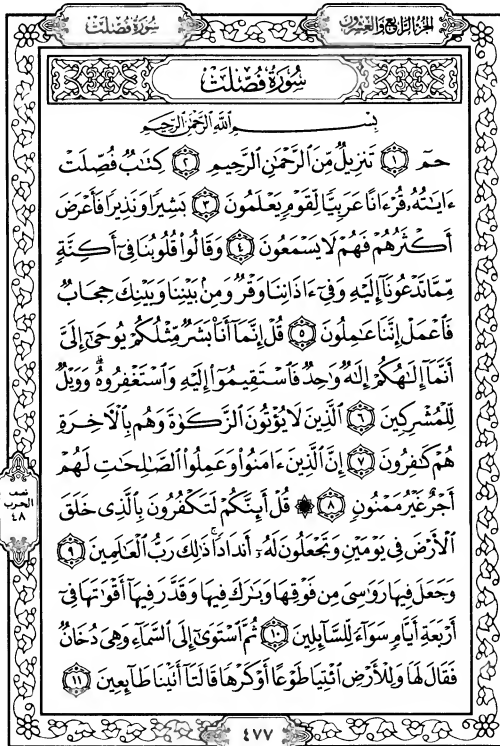 الجزء الرابع والعشرون
سورة فصلت
سُورَةُ فُصِّلَتْ
بِسْمِ ٱللَّهِ ٱلرَّحْمَٰنِ ٱلرَّحِيمِ
حمٓ ١ تَنزِيلٌ مِّنَ ٱلرَّحْمَٰنِ ٱلرَّحِيمِ ٢ كِتَٰبٌ فُصِّلَتْ
ءَايَٰتُهُۥ قُرْءَانًا عَرَبِيًّا لِّقَوْمٍ يَعْلَمُونَ ٣ بَشِيرًا وَنَذِيرًا فَأَعْرَضَ
أَكْثَرُهُمْ فَهُمْ لَا يَسْمَعُونَ ٤ وَقَالُوا۟ قُلُوبُنَا فِىٓ أَكِنَّةٍ
مِّمَّا تَدْعُونَآ إِلَيْهِ وَفِىٓ ءَاذَانِنَا وَقْرٌ وَمِنۢ بَيْنِنَا وَبَيْنِكَ حِجَابٌ
فَٱعْمَلْ إِنَّنَا عَٰمِلُونَ ٥ قُلْ إِنَّمَآ أَنَا۠ بَشَرٌ مِّثْلُكُمْ يُوحَىٰٓ إِلَىَّ
أَنَّمَآ إِلَٰهُكُمْ إِلَٰهٌ وَٰحِدٌ فَٱسْتَقِيمُوٓا۟ إِلَيْهِ وَٱسْتَغْفِرُوهُ ۗ وَوَيْلٌ
لِّلْمُشْرِكِينَ ٦ ٱلَّذِينَ لَا يُؤْتُونَ ٱلزَّكَوٰةَ وَهُم بِٱلْءَاخِرَةِ
هُمْ كَٰفِرُونَ ٧ إِنَّ ٱلَّذِينَ ءَامَنُوا۟ وَعَمِلُوا۟ ٱلصَّٰلِحَٰتِ لَهُمْ
أَجْرٌ غَيْرُ مَمْنُونٍ ٨ ۞ قُلْ أَئِنَّكُمْ لَتَكْفُرُونَ بِٱلَّذِى خَلَقَ
ٱلْأَرْضَ فِى يَوْمَيْنِ وَتَجْعَلُونَ لَهُۥٓ أَندَادًا ۚ ذَٰلِكَ رَبُّ ٱلْعَٰلَمِينَ ٩
وَجَعَلَ فِيهَا رَوَٰسِىَ مِن فَوْقِهَا وَبَٰرَكَ فِيهَا وَقَدَّرَ فِيهَآ أَقْوَٰتَهَا فِىٓ
أَرْبَعَةِ أَيَّامٍ سَوَآءً لِّلسَّآئِلِينَ ١٠ ثُمَّ ٱسْتَوَىٰٓ إِلَى ٱلسَّمَآءِ وَهِىَ دُخَانٌ
فَقَالَ لَهَا وَلِلْأَرْضِ ٱئْتِيَا طَوْعًا أَوْ كَرْهًا قَالَتَآ أَتَيْنَا طَآئِعِينَ ١١
نصف
الحزب
٤٨
٤٧٧